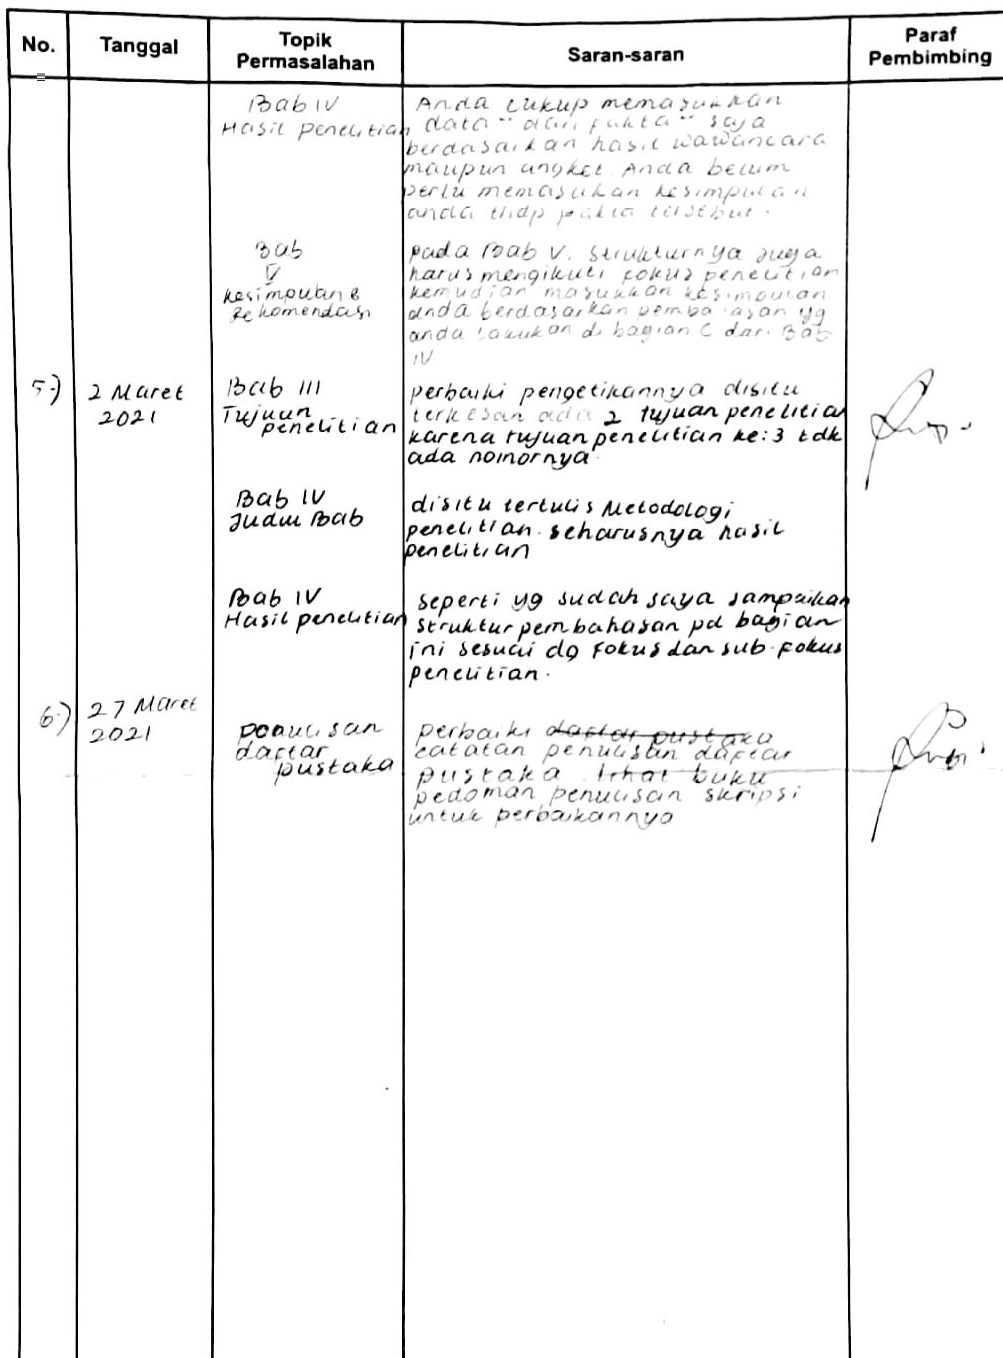 No.
Tanggal
Topik
Permasalahan
Saran-saran
Paraf
Pembimbing
Bab IV
Hasil penelitian
Anda cukup memasukkan
data" dan fakta" saja
berdasarkan hasil wawancara
maupun angket. Anda belum
perlu memasukan kesimpulan
anda thdp fakta tersebut.
Bab
V
Kesimpulan &
Rekomendasi
pada Bab V. strukturnya juga
harus mengikuti fokus penelitian
kemudian masukkan kesimpulan
anda berdasarkan pembahasan yg
anda lakukan di bagian C dari Bab
IV
5.)
2 Maret
2021
Bab III
Tujuan
penelitian
perbaiki pengetikannya disitu
terkesan ada 2 tujuan penelitian
karena tujuan penelitian ke: 3 tdk
ada nomornya.
Bab IV
Judul Bab
disitu tertulis Metodologi
penelitian. seharusnya hasil
penelitian
Bab IV
Hasil penelitian
seperti yg sudah saya sampaikan
struktur pembahasan pd bagian
ini sesuai dg fokus dan sub-fokus
penelitian.
6.)
27 Maret
2021
penulisan
daftar
pustaka
perbaiki daftar pustaka
catatan penulisan daftar
pustaka lihat buku
pedoman penulisan skripsi
untuk perbaikannya